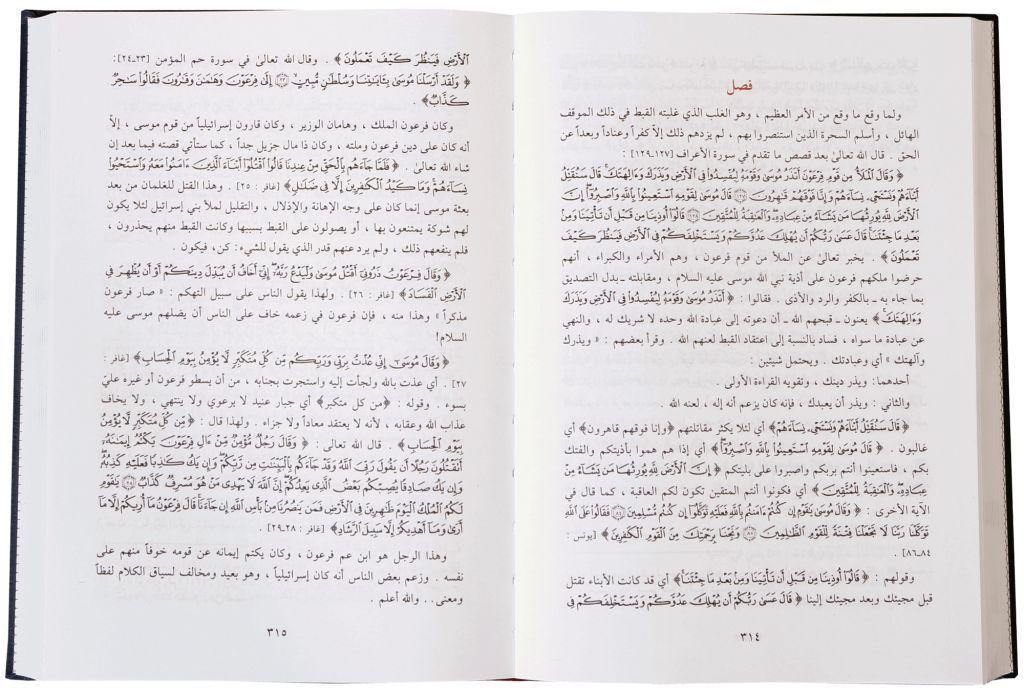 فصل
ولما وقع ما وقع من الأمر العظيم ، وهو الغلب الذي غلبته القبط في ذلك الموقف
الهائل ، وأسلم السحرة الذين استنصروا بهم ، لم يزدهم ذلك إلاّ كفراً وعناداً وبعداً عن
الحق . قال الله تعالىٰ بعد قصص ما تقدم في سورة الأعراف [١٢٧ـ١٢٩] :
﴿ وَقَالَ الْمَلَأُ مِن قَوْمِ فِرْعَوْنَ أَتَذَرُ مُوسَىٰ وَقَوْمَهُ لِيُفْسِدُوا فِي الْأَرْضِ وَيَذَرَكَ وَآلِهَتَكَ ۚ قَالَ سَنُقَتِّلُ
أَبْنَاءَهُمْ وَنَسْتَحْيِي نِسَاءَهُمْ وَإِنَّا فَوْقَهُمْ قَاهِرُونَ ﴿١٢٧﴾ قَالَ مُوسَىٰ لِقَوْمِهِ اسْتَعِينُوا بِاللَّهِ وَاصْبِرُوا ۖ إِنَّ
الْأَرْضَ لِلَّهِ يُورِثُهَا مَن يَشَاءُ مِنْ عِبَادِهِ ۖ وَالْعَاقِبَةُ لِلْمُتَّقِينَ ﴿١٢٨﴾ قَالُوا أُوذِينَا مِن قَبْلِ أَن تَأْتِيَنَا وَمِن
بَعْدِ مَا جِئْتَنَا ۚ قَالَ عَسَىٰ رَبُّكُمْ أَن يُهْلِكَ عَدُوَّكُمْ وَيَسْتَخْلِفَكُمْ فِي الْأَرْضِ فَيَنظُرَ كَيْفَ
تَعْمَلُونَ ﴾ . يخبر تعالىٰ عن الملأ من قوم فرعون ، وهم الأمراء والكبراء ، أنهم
حرضوا ملكهم فرعون على أذية نبي الله موسى عليه السلام ، ومقابلته ـ بدل التصديق
بما جاء به ـ بالكفر والرد والأذى . فقالوا : ﴿ أَتَذَرُ مُوسَىٰ وَقَوْمَهُ لِيُفْسِدُوا فِي الْأَرْضِ وَيَذَرَكَ
وَآلِهَتَكَ ﴾ يعنون ـ قبحهم الله ـ أن دعوته إلى عبادة الله وحده لا شريك له ، والنهي
عن عبادة ما سواه ، فساد بالنسبة إلى اعتقاد القبط لعنهم الله . وقرأ بعضهم : « ويذرك
وآلهتك » أي وعبادتك . ويحتمل شيئين :
أحدهما : ويذر دينك ، وتقويه القراءة الأولى .
والثاني : ويذر أن يعبدك ، فإنه كان يزعم أنه إله ، لعنه الله .
﴿ قَالَ سَنُقَتِّلُ أَبْنَاءَهُمْ وَنَسْتَحْيِي نِسَاءَهُمْ ﴾ أي لئلا يكثر مقاتلتهم ﴿وإنا فوقهم قاهرون﴾ أي
غالبون . ﴿ قَالَ مُوسَىٰ لِقَوْمِهِ اسْتَعِينُوا بِاللَّهِ وَاصْبِرُوا ﴾ أي إذا هم هموا بأذيتكم والفتك
بكم ، فاستعينوا أنتم بربكم واصبروا على بليتكم ﴿ إِنَّ الْأَرْضَ لِلَّهِ يُورِثُهَا مَن يَشَاءُ مِنْ
عِبَادِهِ ۖ وَالْعَاقِبَةُ لِلْمُتَّقِينَ ﴾ أي فكونوا أنتم المتقين تكون لكم العاقبة ، كما قال في
الآية الأخرى : ﴿ وَقَالَ مُوسَىٰ يَا قَوْمِ إِن كُنتُمْ آمَنتُم بِاللَّهِ فَعَلَيْهِ تَوَكَّلُوا إِن كُنتُم مُّسْلِمِينَ ﴿٨٤﴾ فَقَالُوا عَلَى اللَّهِ
تَوَكَّلْنَا رَبَّنَا لَا تَجْعَلْنَا فِتْنَةً لِّلْقَوْمِ الظَّالِمِينَ ﴿٨٥﴾ وَنَجِّنَا بِرَحْمَتِكَ مِنَ الْقَوْمِ الْكَافِرِينَ ﴾ [يونس :
٨٤ـ٨٦] .
وقولهم : ﴿ قَالُوا أُوذِينَا مِن قَبْلِ أَن تَأْتِيَنَا وَمِن بَعْدِ مَا جِئْتَنَا ﴾ أي قد كانت الأبناء تقتل
قبل مجيئك وبعد مجيئك إلينا ﴿ قَالَ عَسَىٰ رَبُّكُمْ أَن يُهْلِكَ عَدُوَّكُمْ وَيَسْتَخْلِفَكُمْ فِي
٣١٤
الْأَرْضِ فَيَنظُرَ كَيْفَ تَعْمَلُونَ ﴾ . وقال الله تعالىٰ في سورة حم المؤمن [٢٣ـ٢٤] :
﴿ وَلَقَدْ أَرْسَلْنَا مُوسَىٰ بِآيَاتِنَا وَسُلْطَانٍ مُّبِينٍ ﴿٢٣﴾ إِلَىٰ فِرْعَوْنَ وَهَامَانَ وَقَارُونَ فَقَالُوا سَاحِرٌ
كَذَّابٌ ﴾ .
وكان فرعون الملك ، وهامان الوزير ، وكان قارون إسرائيلياً من قوم موسى ، إلاّ
أنه كان على دين فرعون وملئه ، وكان ذا مال جزيل جداً ، كما ستأتي قصته فيما بعد إن
شاء الله تعالىٰ . ﴿ فَلَمَّا جَاءَهُم بِالْحَقِّ مِنْ عِندِنَا قَالُوا اقْتُلُوا أَبْنَاءَ الَّذِينَ آمَنُوا مَعَهُ وَاسْتَحْيُوا
نِسَاءَهُمْ ۚ وَمَا كَيْدُ الْكَافِرِينَ إِلَّا فِي ضَلَالٍ ﴾ [غافر : ٢٥] . وهذا القتل للغلمان من بعد
بعثة موسى إنما كان على وجه الإهانة والإذلال ، والتقليل لملأ بني إسرائيل لئلا يكون
لهم شوكة يمتنعون بها ، أو يصولون على القبط بسببها وكانت القبط منهم يحذرون ،
فلم ينفعهم ذلك ، ولم يرد عنهم قدر الذي يقول للشيء: كن، فيكون .
﴿ وَقَالَ فِرْعَوْنُ ذَرُونِي أَقْتُلْ مُوسَىٰ وَلْيَدْعُ رَبَّهُ ۖ إِنِّي أَخَافُ أَن يُبَدِّلَ دِينَكُمْ أَوْ أَن يُظْهِرَ فِي
الْأَرْضِ الْفَسَادَ ﴾ [غافر : ٢٦] . ولهذا يقول الناس على سبيل التهكم : « صار فرعون
مذكراً » وهذا منه ، فإن فرعون في زعمه خاف على الناس أن يضلهم موسى عليه
السلام!
﴿ وَقَالَ مُوسَىٰ إِنِّي عُذْتُ بِرَبِّي وَرَبِّكُم مِّن كُلِّ مُتَكَبِّرٍ لَّا يُؤْمِنُ بِيَوْمِ الْحِسَابِ ﴾ [غافر :
٢٧] . أي عذت بالله ولجأت إليه واستجرت بجنابه ، من أن يسطو فرعون أو غيره عليّ
بسوء . وقوله : ﴿من كل متكبر﴾ أي جبار عنيد لا يرعوي ولا ينتهي ، ولا يخاف
عذاب الله وعقابه ، لأنه لا يعتقد معاداً ولا جزاء . ولهذا قال : ﴿ مِّن كُلِّ مُتَكَبِّرٍ لَّا يُؤْمِنُ
بِيَوْمِ الْحِسَابِ ﴾ . قال الله تعالى : ﴿ وَقَالَ رَجُلٌ مُّؤْمِنٌ مِّنْ آلِ فِرْعَوْنَ يَكْتُمُ إِيمَانَهُ
أَتَقْتُلُونَ رَجُلًا أَن يَقُولَ رَبِّيَ اللَّهُ وَقَدْ جَاءَكُم بِالْبَيِّنَاتِ مِن رَّبِّكُمْ ۖ وَإِن يَكُ كَاذِبًا فَعَلَيْهِ كَذِبُهُ ۖ
وَإِن يَكُ صَادِقًا يُصِبْكُم بَعْضُ الَّذِي يَعِدُكُمْ ۖ إِنَّ اللَّهَ لَا يَهْدِي مَنْ هُوَ مُسْرِفٌ كَذَّابٌ ﴿٢٨﴾ يَا قَوْمِ
لَكُمُ الْمُلْكُ الْيَوْمَ ظَاهِرِينَ فِي الْأَرْضِ فَمَن يَنصُرُنَا مِن بَأْسِ اللَّهِ إِن جَاءَنَا ۚ قَالَ فِرْعَوْنُ مَا أُرِيكُمْ إِلَّا مَا
أَرَىٰ وَمَا أَهْدِيكُمْ إِلَّا سَبِيلَ الرَّشَادِ ﴾ [غافر : ٢٨ـ٢٩] .
وهذا الرجل هو ابن عم فرعون ، وكان يكتم إيمانه عن قومه خوفاً منهم على
نفسه . وزعم بعض الناس أنه كان إسرائيلياً ، وهو بعيد ومخالف لسياق الكلام لفظاً
ومعنى . . والله أعلم .
٣١٥